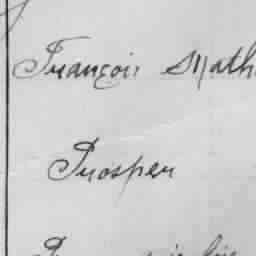 François Math
Prosper